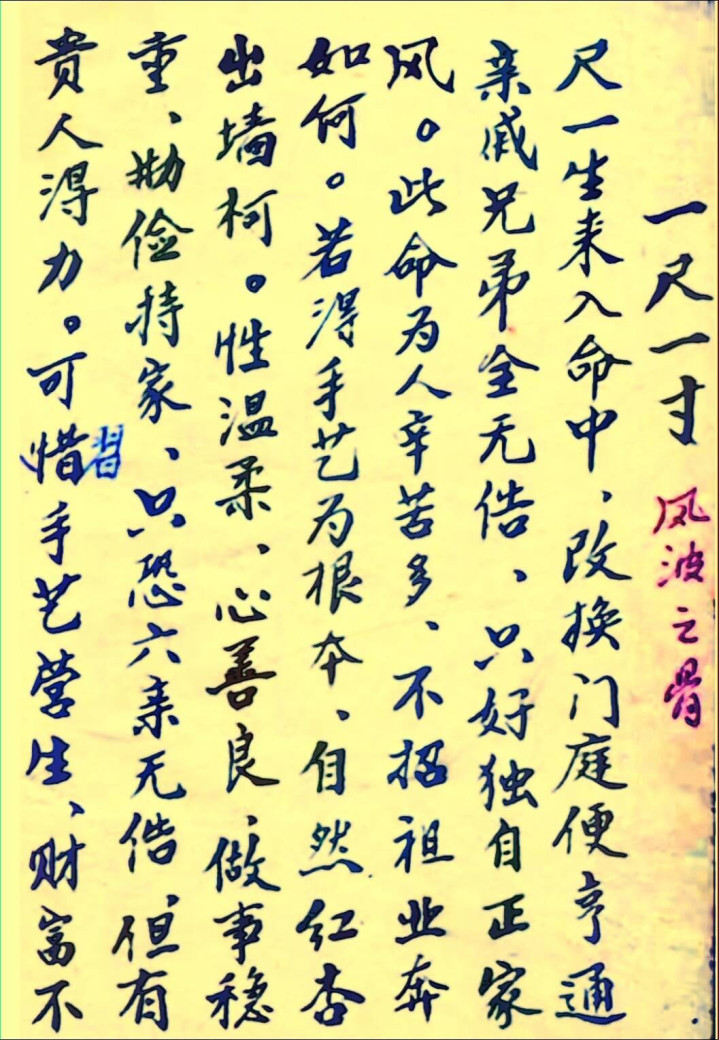 一尺一寸 风波之骨
尺一生来入命中、改换门庭便亨通
亲戚兄弟全无倚、只好独自正家
风。此命为人辛苦多、不招祖业奔
如何。若得手艺为根本、自然红杏
出墙柯。性温柔、心善良、做事稳
重、勤俭持家、只恐六亲无倚、但有
贵人得力。可惜習手艺营生、财富不